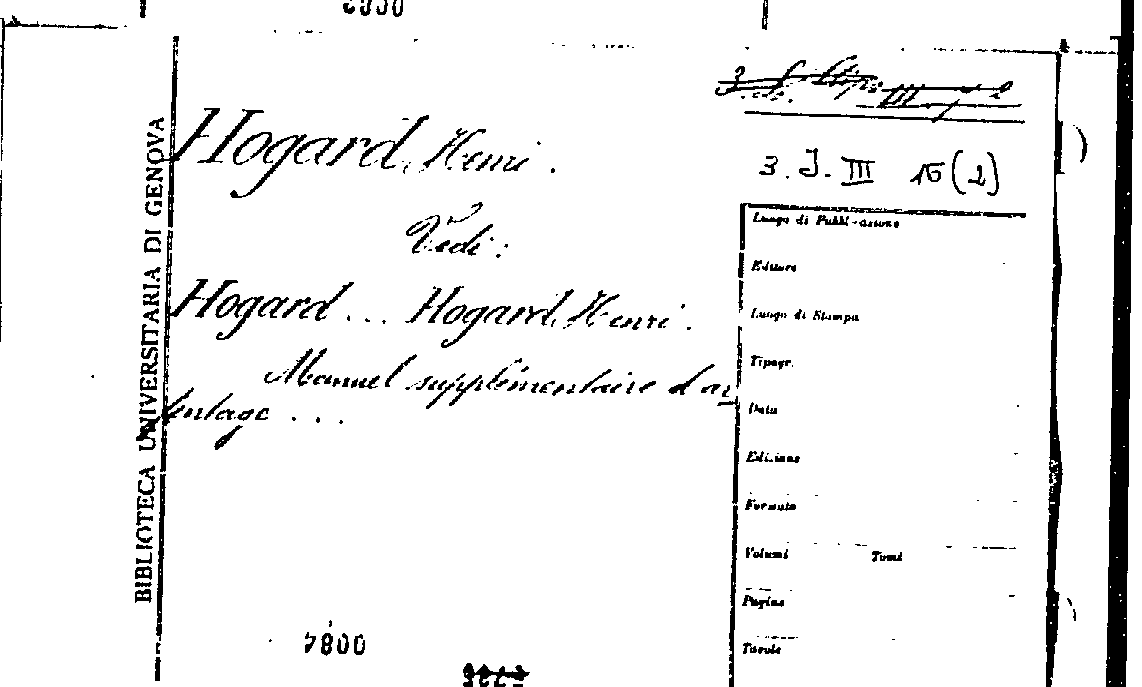 BIBLIOTECA UNIVERSITARIA DI GENOVA
Hogard, Henri.
Vedi:
Hogard ... Hogard, Henri.
Manuel supplémentaire d'ar
pentage ...
3. J. III 15 (2)
Luogo di Pubblicazione
Editore
Luogo di Stampa
Tipogr.
Data
Edizione
Formato
Volumi Tomi
Pagine
Tavole
7800